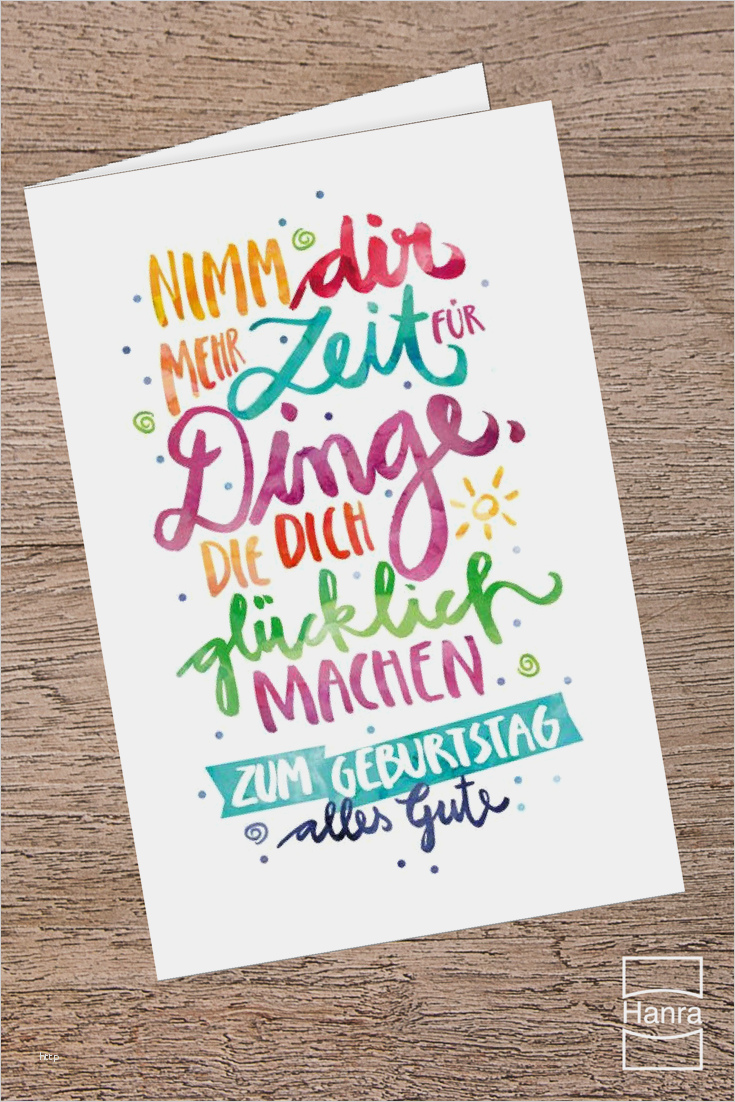 NIMM dir
MEHR Zeit FÜR
Dinge,
DIE DICH
glücklich
MACHEN
ZUM GEBURTSTAG
alles Gute
Hanra
http